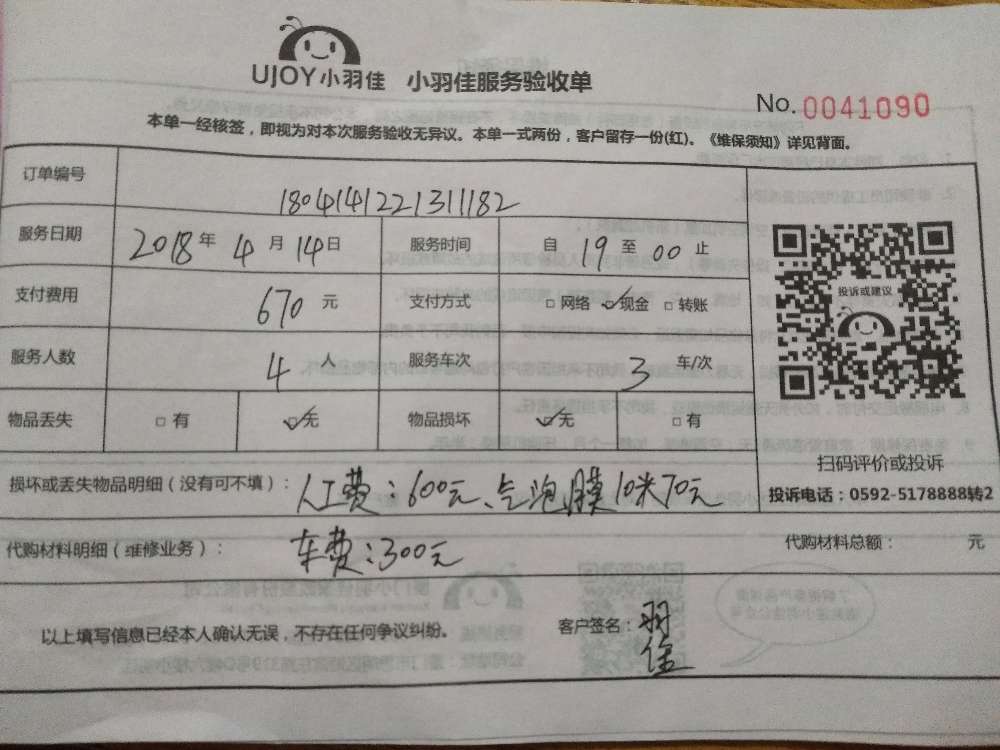 UJOY小羽佳 小羽佳服务验收单
No. 0041090
本单一经核签，即视为对本次服务验收无异议。本单一式两份，客户留存一份(红)。《维保须知》详见背面。
订单编号 1804141221311182
服务日期 2018年4月14日 服务时间 自19至00止
支付费用 670元 支付方式 □网络 ☑现金 □转账
投诉或建议
服务人数 4人 服务车次 3车/次
物品丢失 □有 ☑无 物品损坏 ☑无 □有
扫码评价或投诉
损坏或丢失物品明细（没有可不填）：人工费：600元、气泡膜10米70元
投诉电话：0592-5178888转2
代购材料明细（维修业务）：车费：300元 代购材料总额： 元
以上填写信息已经本人确认无误，不存在任何争议纠纷。 客户签名：羽佳